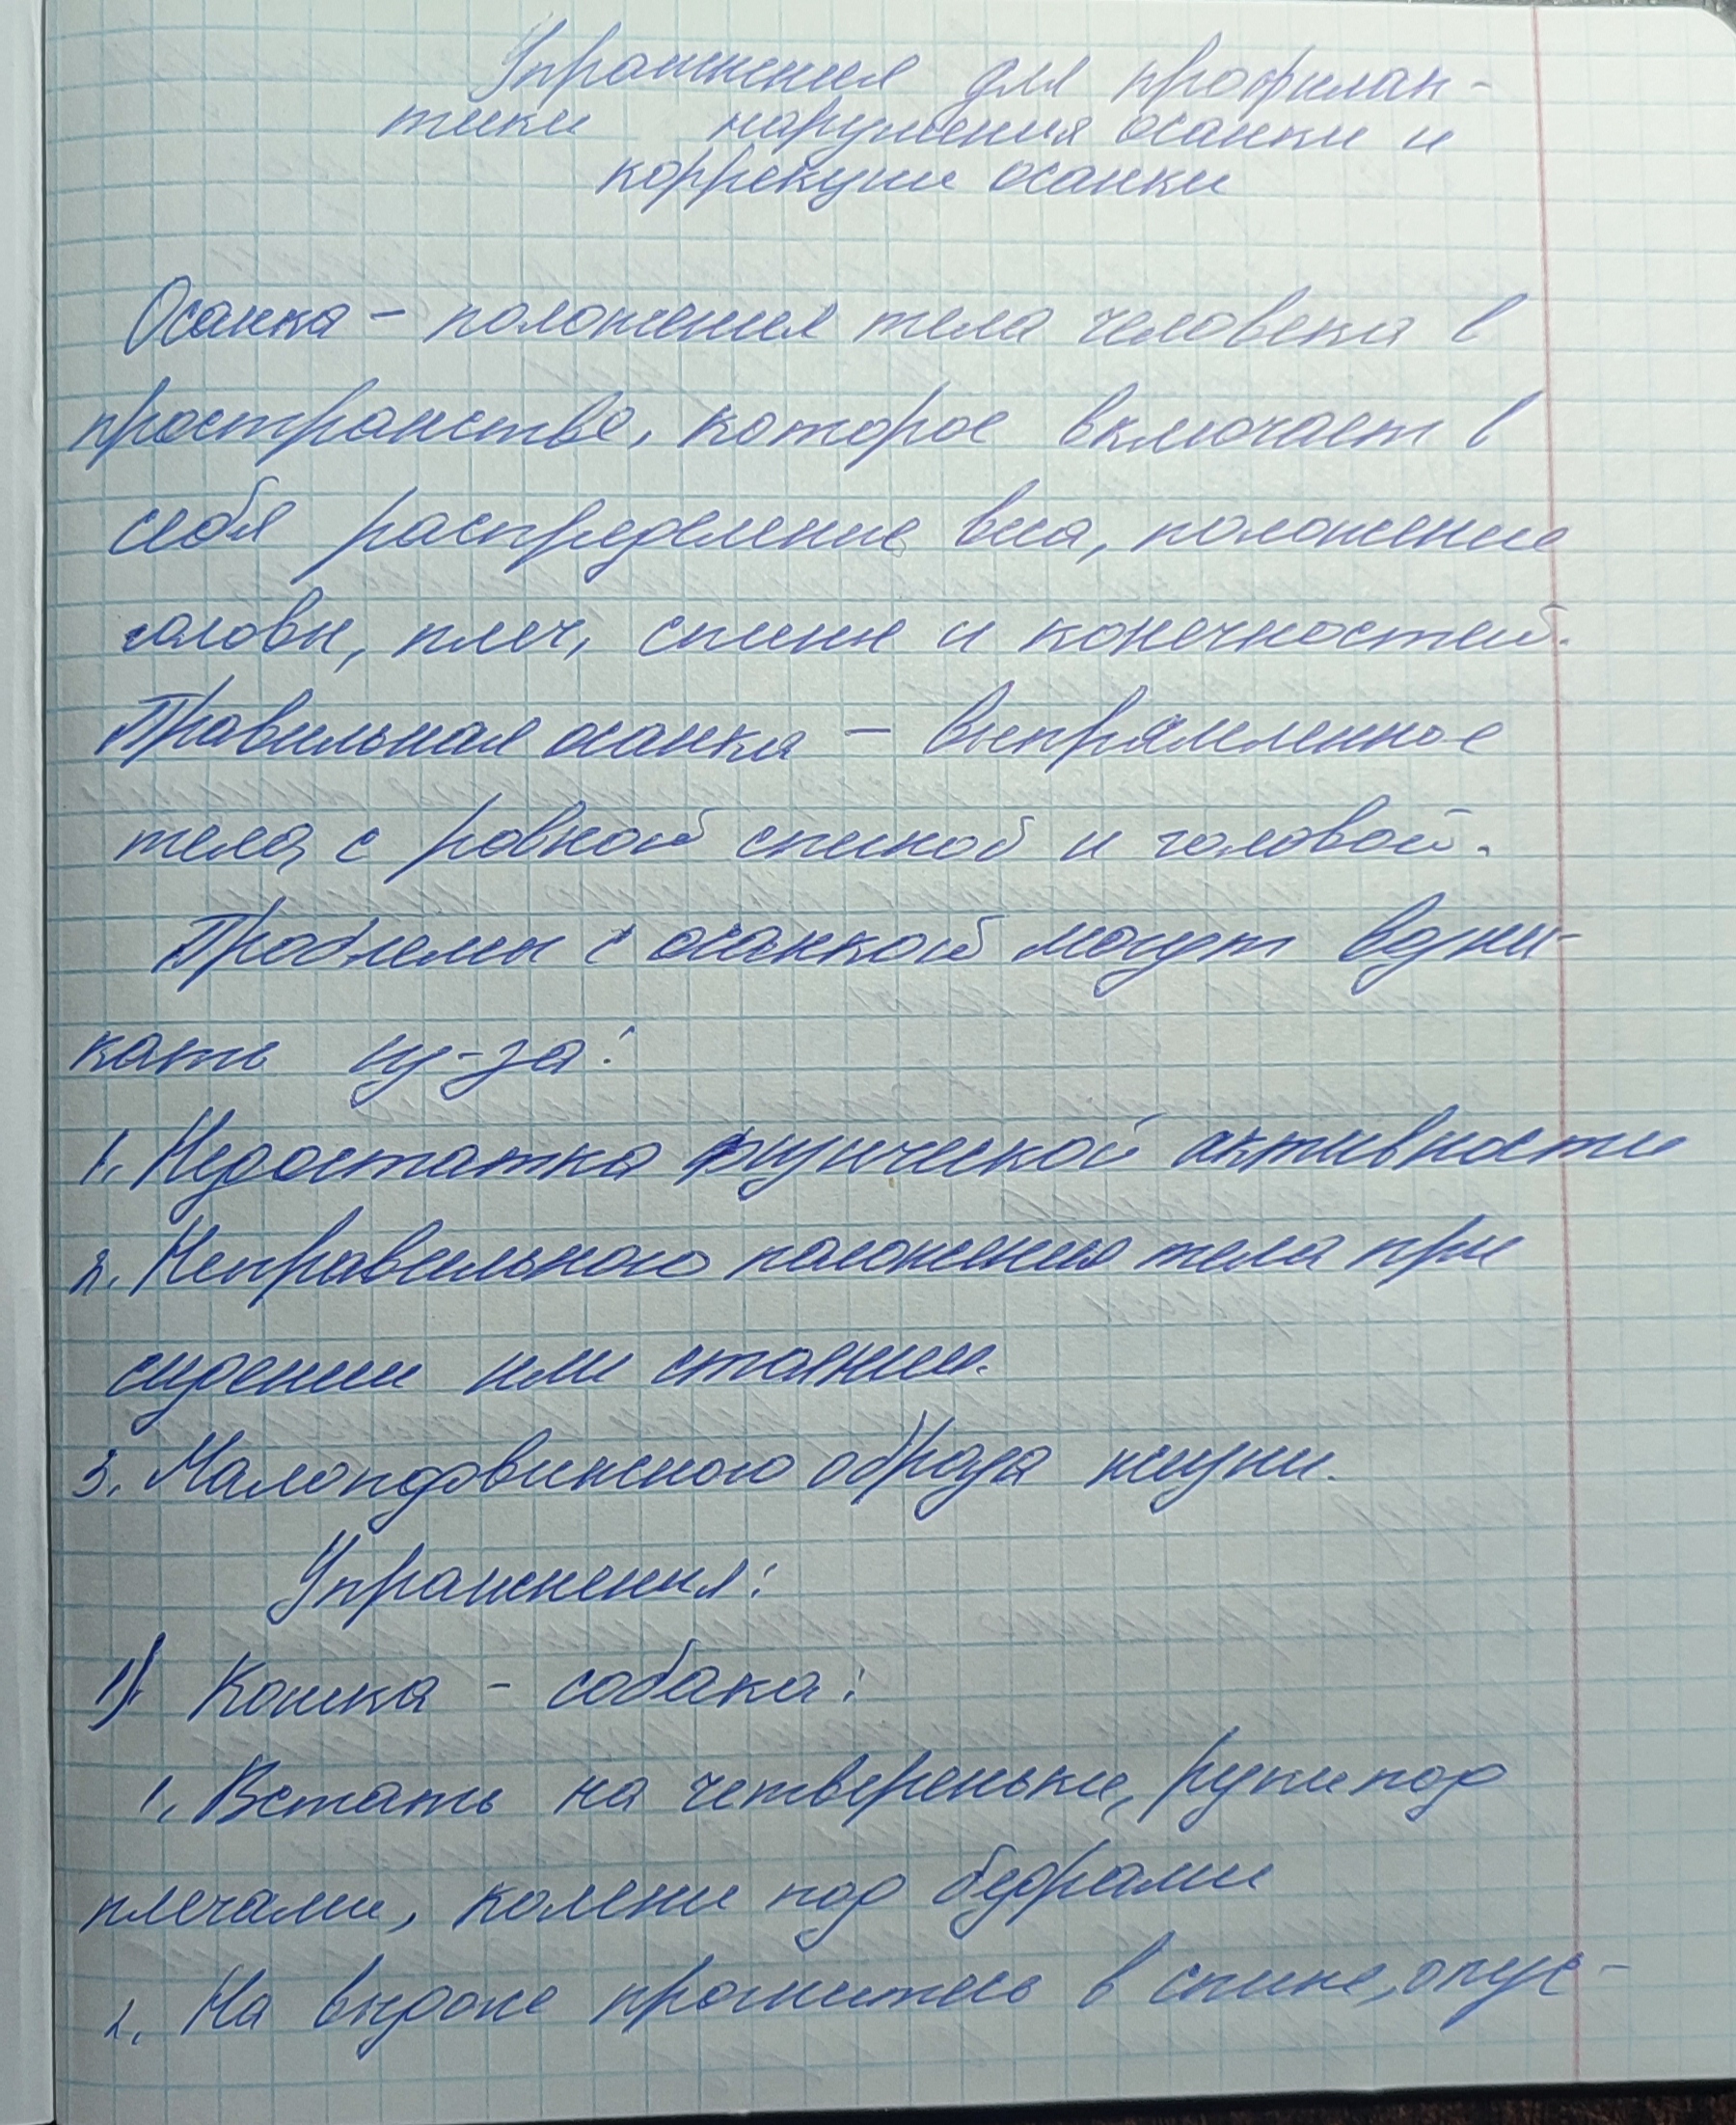 Упражнения для профилак-
тики нарушения осанки и
коррекции осанки
Осанка - положения тела человека в
пространстве, которое включает в
себя распределение веса, положение
головы, плеч, спины и конечностей.
Правильная осанка - выпрямленное
тело, с ровной спиной и головой.
Проблемы с осанкой могут возни-
кать из-за:
1. Недостатка физической активности
2. Неправильного положения тела при
сидении или стоянии.
3. Малоподвижного образа жизни.
Упражнения:
1) Кошка - собака:
1. Встать на четвереньки, руки под
плечами, колени под бедрами
2. На выдохе прогнитесь в спине, опус-